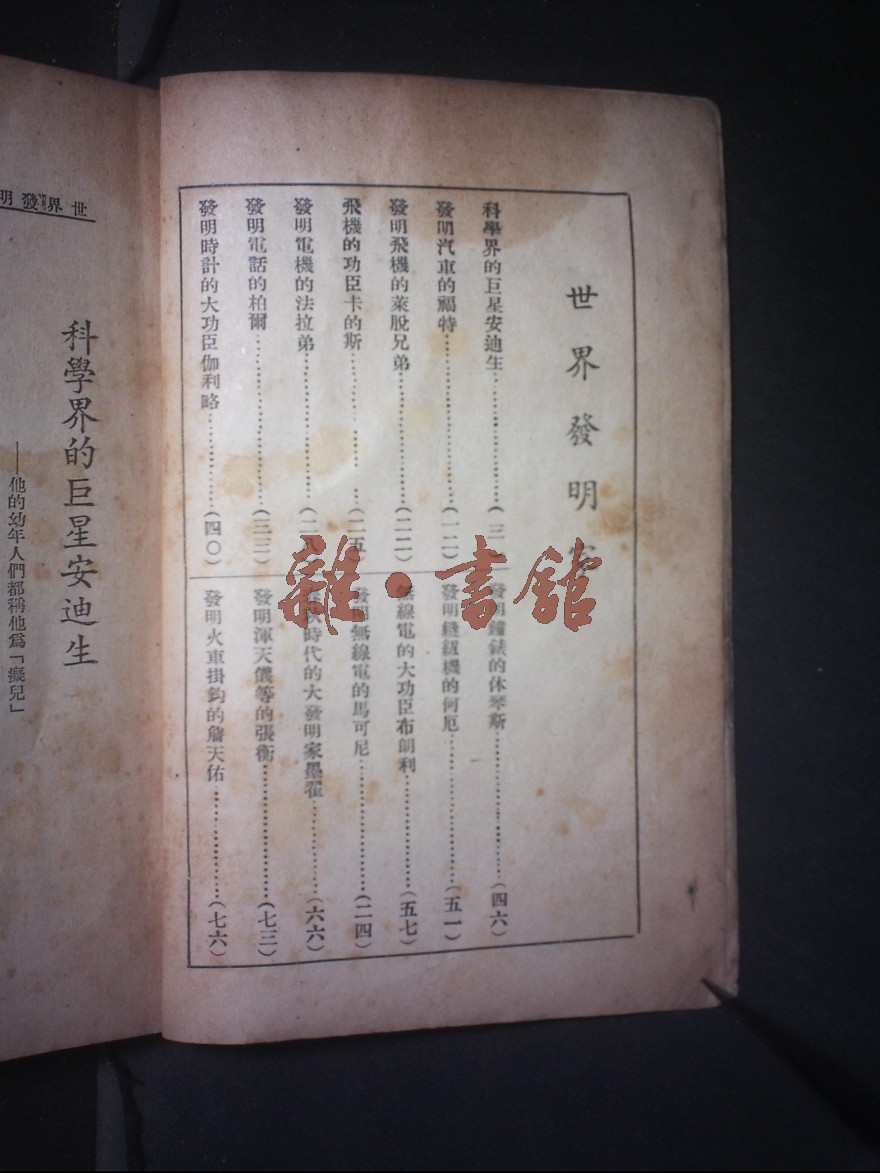 世界發明
科學界的巨星安迪生……(三)
發明汽車的福特……(一二)
發明飛機的萊股兄弟……(二二)
飛機的功臣卡的斯……(二五)
發明電機的法拉弟……(二八
發明電話的柏爾……(三三)
發明時計的大功臣伽利略……(四〇)
發明鐘錶的休琴斯……(四六)
發明縫紉機的何厄……(五一)
無線電的大功臣布朗利……(五七)
發明無線電的馬可尼……(二四)
秋時代的大發明家墨翟……(六六)
發明渾天儀等的張衡……(七三)
發明火車掛鈎的詹天佑……(七六)
世界發明
科學界的巨星安迪生
——他的幼年人們都稱他爲「癡兒」
雜·書館